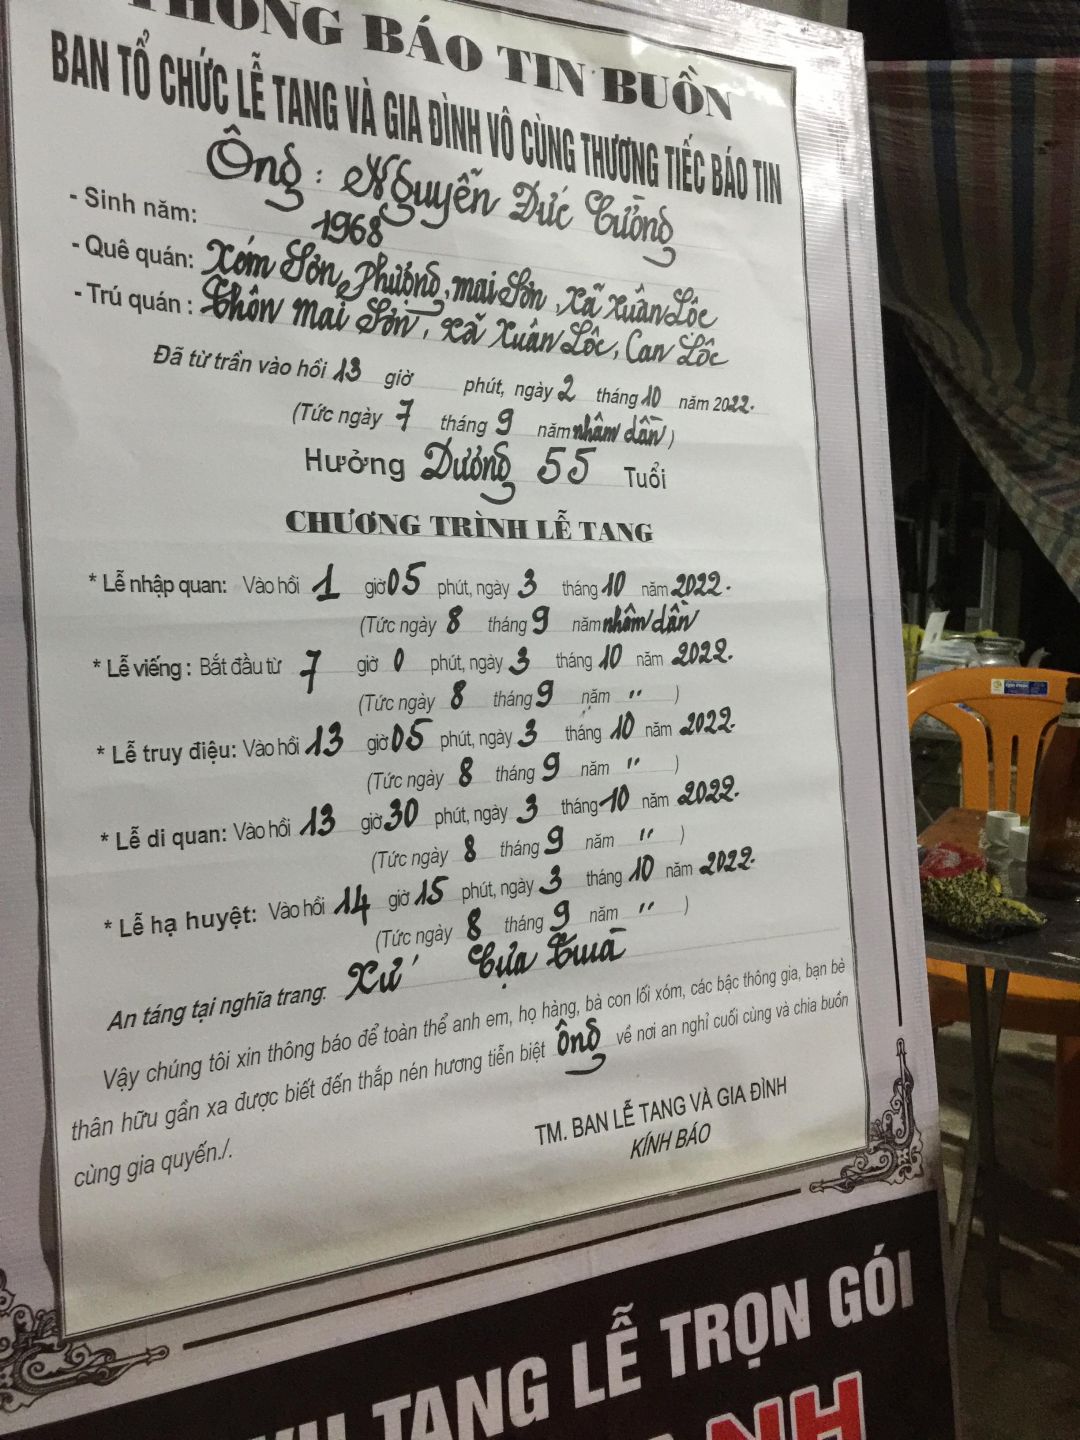 THÔNG BÁO TIN BUỒN
BAN TỔ CHỨC LỄ TANG VÀ GIA ĐÌNH VÔ CÙNG THƯƠNG TIẾC BÁO TIN
Ông: Nguyễn Đức Cường
- Sinh năm: 1968
- Quê quán: Xóm Sơn Phượng, mai Sơn, xã Xuân Lộc
- Trú quán: Thôn mai Sơn, xã Xuân Lộc, Can Lộc
Đã từ trần vào hồi 13 giờ phút, ngày 2 tháng 10 năm 2022.
(Tức ngày 7 tháng 9 năm nhâm dần)
Hưởng Dương 55 Tuổi
CHƯƠNG TRÌNH LỄ TANG
* Lễ nhập quan: Vào hồi 1 giờ 05 phút, ngày 3 tháng 10 năm 2022.
(Tức ngày 8 tháng 9 năm nhâm dần
* Lễ viếng: Bắt đầu từ 7 giờ 0 phút, ngày 3 tháng 10 năm 2022.
(Tức ngày 8 tháng 9 năm " )
* Lễ truy điệu: Vào hồi 13 giờ 05 phút, ngày 3 tháng 10 năm 2022.
(Tức ngày 8 tháng 9 năm " )
* Lễ di quan: Vào hồi 13 giờ 30 phút, ngày 3 tháng 10 năm 2022.
(Tức ngày 8 tháng 9 năm " )
* Lễ hạ huyệt: Vào hồi 14 giờ 15 phút, ngày 3 tháng 10 năm 2022.
(Tức ngày 8 tháng 9 năm " )
An táng tại nghĩa trang: Xứ Cựa
Vậy chúng tôi xin thông báo để toàn thể anh em, họ hàng, bà con lối xóm, các bậc thông gia, bạn bè
thân hữu gần xa được biết đến thắp nén hương tiễn biệt ông về nơi an nghỉ cuối cùng và chia buồn
cùng gia quyến./.
TM. BAN LỄ TANG VÀ GIA ĐÌNH
KÍNH BÁO
TANG LỄ TRỌN GÓI